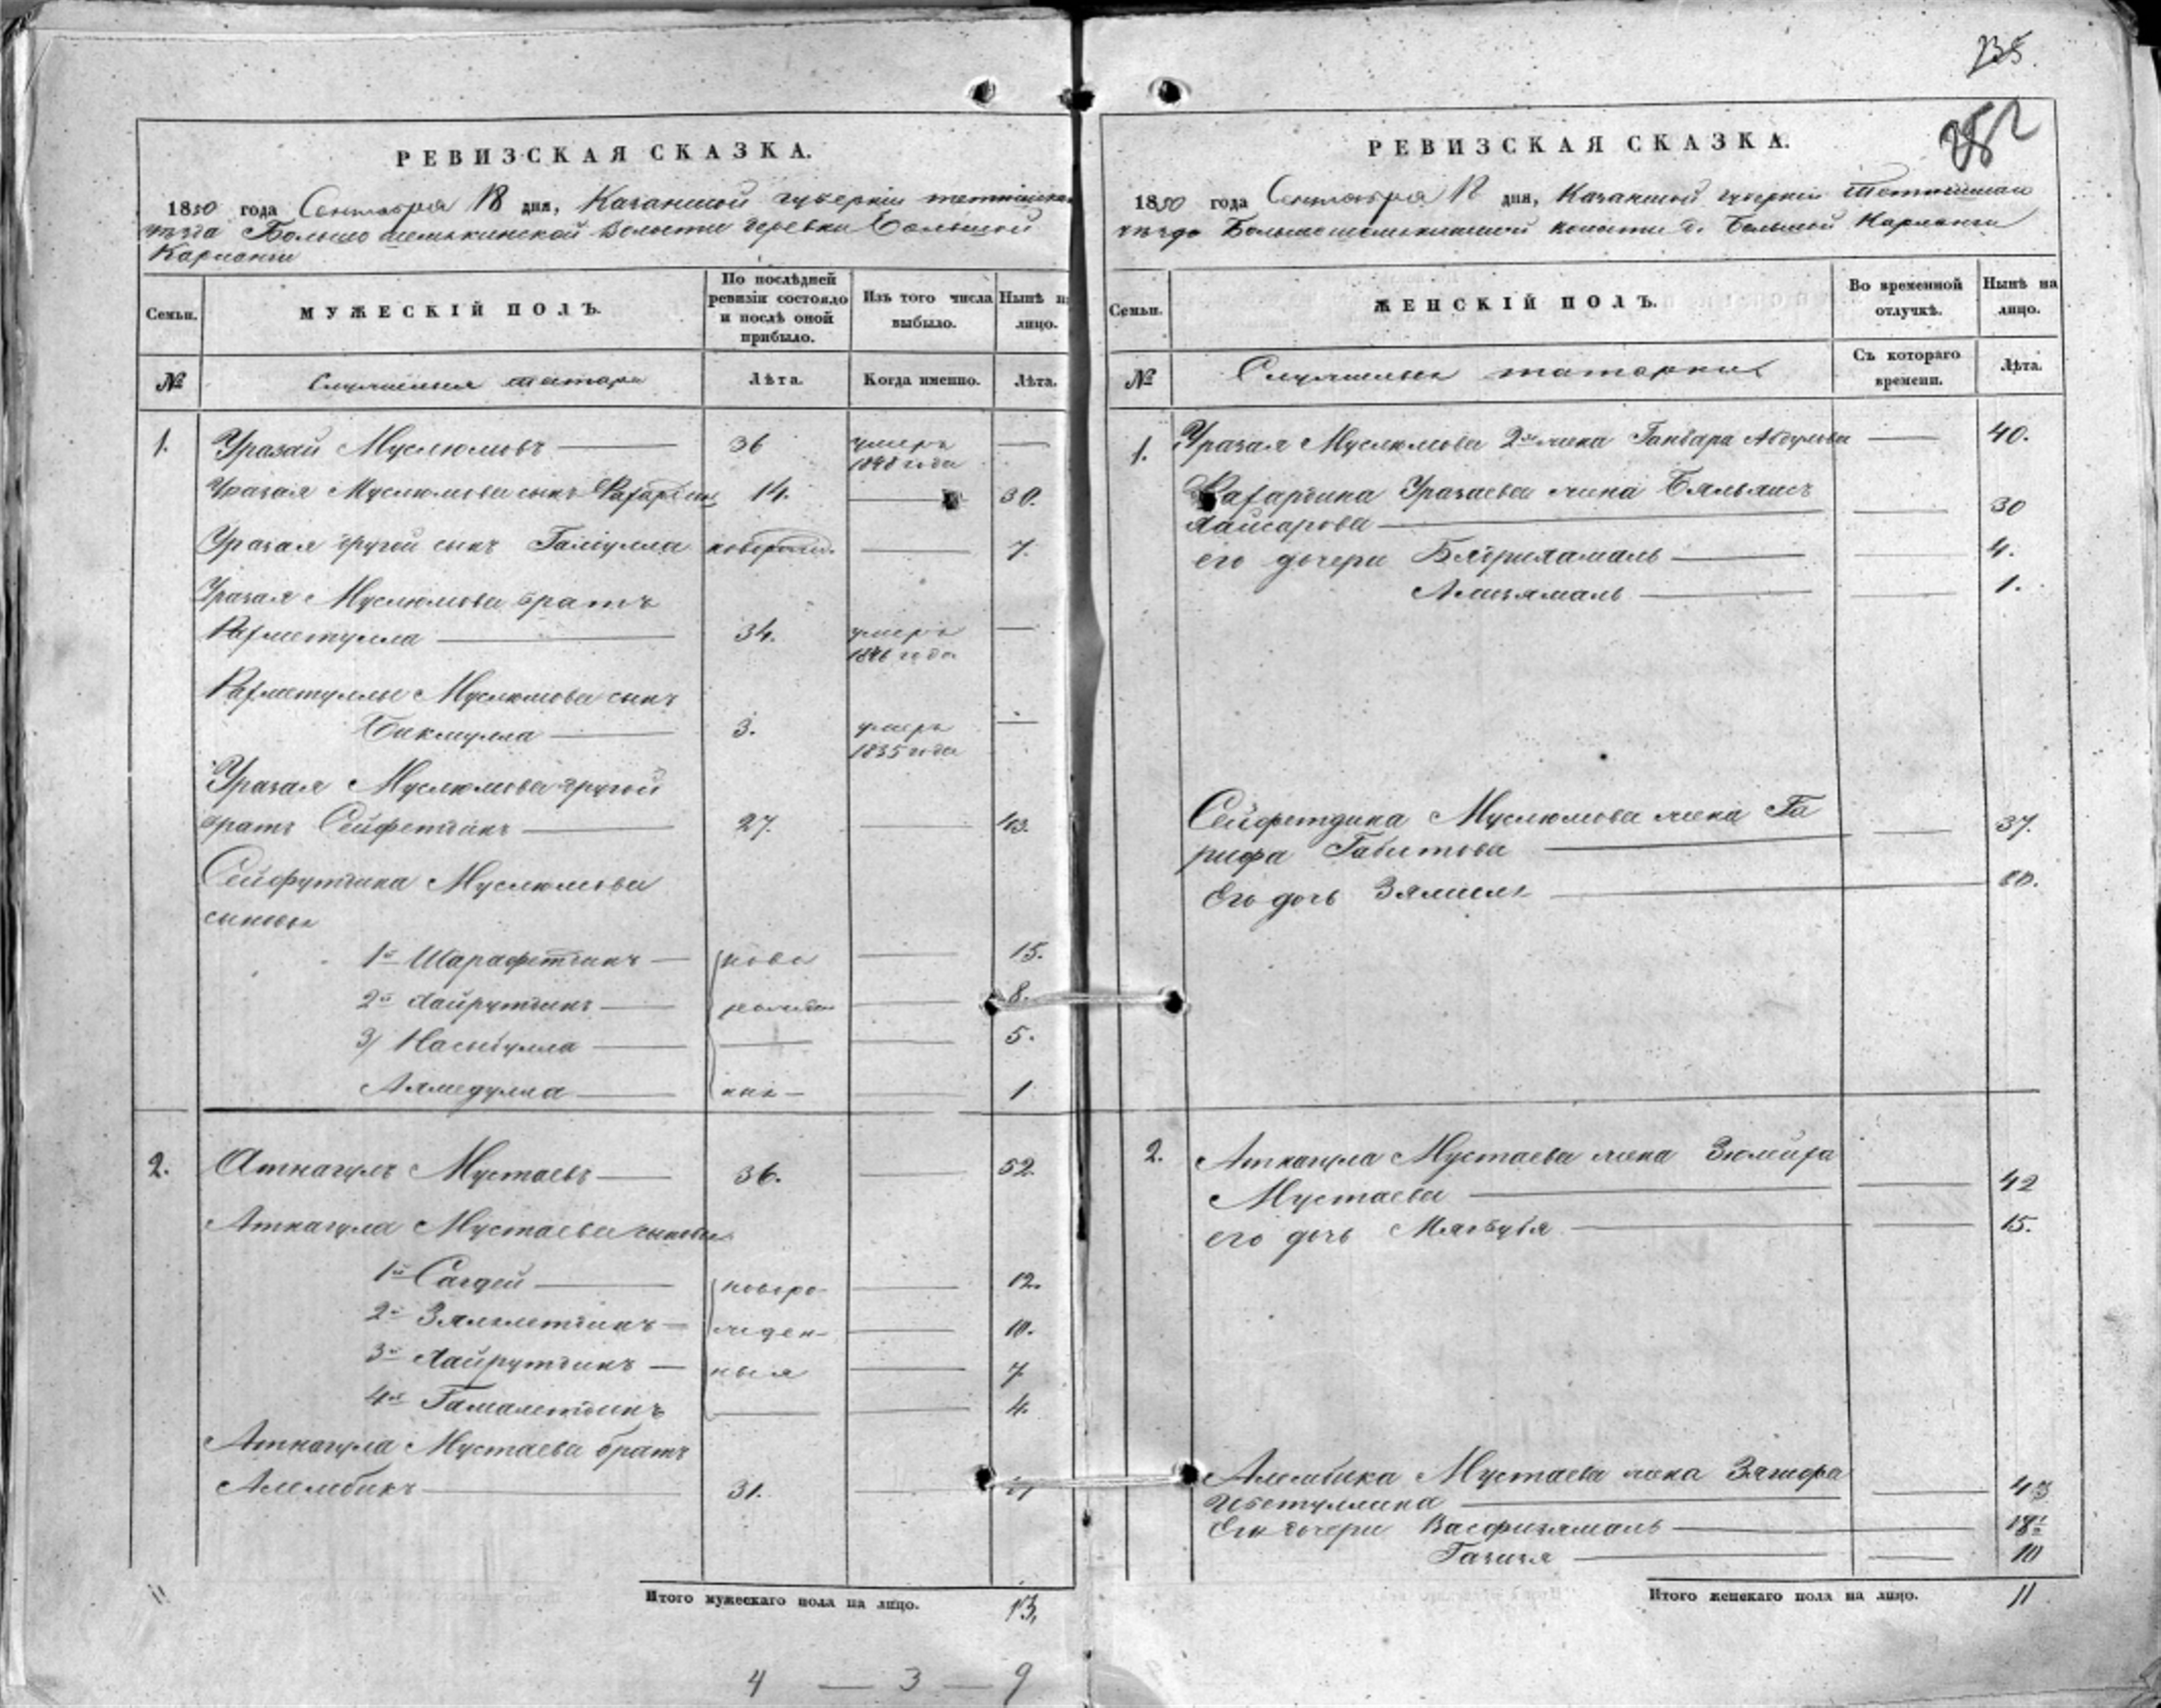 РЕВИЗСКАЯ СКАЗКА.
1850 года Сентября 18 дня, Казанской губернии тетюшска
уѣзда Большешемякинской Волости деревни Большой
Карланги
Семьи.
МУЖЕСКІЙ ПОЛЪ.
По послѣдней ревизіи состояло и послѣ оной прибыло.
Изъ того числа выбыло.
Нынѣ н лицо.
№
Служилыя татара
Лѣта.
Когда именно.
Лѣта.
1. Уразай Муслюмовъ 36 умеръ —
1848 года
Уразая Муслюмова сынъ 14. — 30.
Уразая другой сынъ Галіулла новорожд. — 7.
Уразая Муслюмова братъ
Рахметулла 34. умеръ —
1846 года
Рахметуллы Муслюмова сынъ
Бикмулла 3. умеръ —
1835 года
Уразая Муслюмова другой
братъ Сейфетдинъ 27. — 43.
Сейфутдина Муслюмова
сыновья
1й Шарафетдинъ — ново — 15.
2й Хайрутдинъ — рожден — 8.
3) Насыбулла — — — 5.
Ахмедулла — ных — — 1
2. Атнагулъ Мустаевъ — 36. — 52.
Атнагула Мустаева сыновья
1й Сагдей — новоро — 12.
2й Зялялетдинъ — жден — 10.
3й Хайрутдинъ — ныя — 7
4й Гамалетдинъ — — 4.
Атнагула Мустаева братъ
Алембикъ — 31. —
Итого мужескаго пола на лицо. 13,
4 — 3 — 9
235.
252
РЕВИЗСКАЯ СКАЗКА.
1850 года Сентября 18 дня, Казанской губерніи Тетюшскаго
уѣзда Большешемякинской волости д. Большой Карланги
Семьи.
ЖЕНСКІЙ ПОЛЪ.
Во временной отлучкѣ.
Нынѣ на лицо.
№
Служилыя татарки
Съ котораго времени.
Лѣта.
1. Уразая Муслюмова 2я жена Абдулова — 40.
Уразаева жена
Хайсарова — — 30
его дочери Бядриямаль — — 4.
— — 1.
Сейфетдина Муслюмова жена Га
рифа Габитова — — 37.
Его дочь Зямиля — 80.
2. Атнагула Мустаева жена
Мустаева — — 42
его дочь — 15.
Алембика Мустаева жена
—
Его дочери Васфиямаль —
Газизя — — 10
Итого женскаго пола на лицо. 11